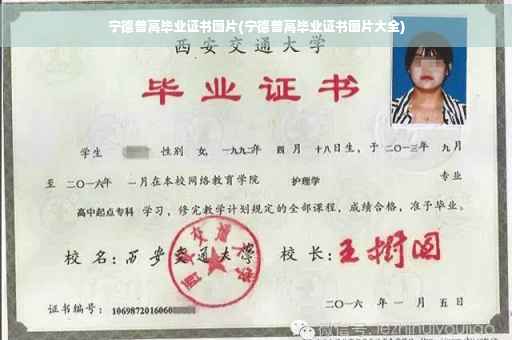 宁德普高毕业证书图片(宁德普高毕业证书图片大全)
西安交通大学
毕业证书
学生 性别 女,一九九二年 四 月 十八日生,于 二〇一三年 九月
至 二〇一六年 一月在本校网络教育学院 护理学 专业
高中起点专科 学习,修完教学计划规定的全部课程,成绩合格,准予毕业。
校 名:西安交通大学 校 长:王树国
西安交通大学
证书编号:1069872016060
二〇一六 年 一 月 五 日
微信号:jezhinuiyoujiao